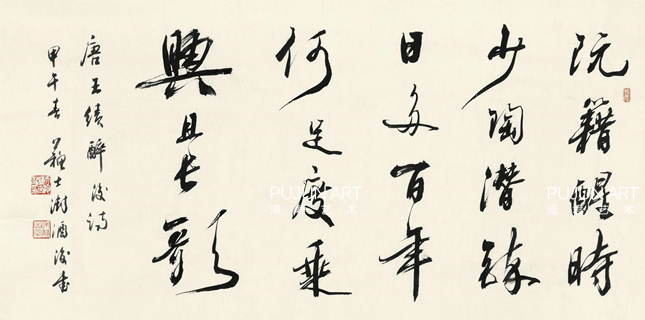 阮籍醒時
少陶潛醉
日多百年
何足度乘
興且長歌
唐王績醉後詩
甲午春蘇士澍酒後書